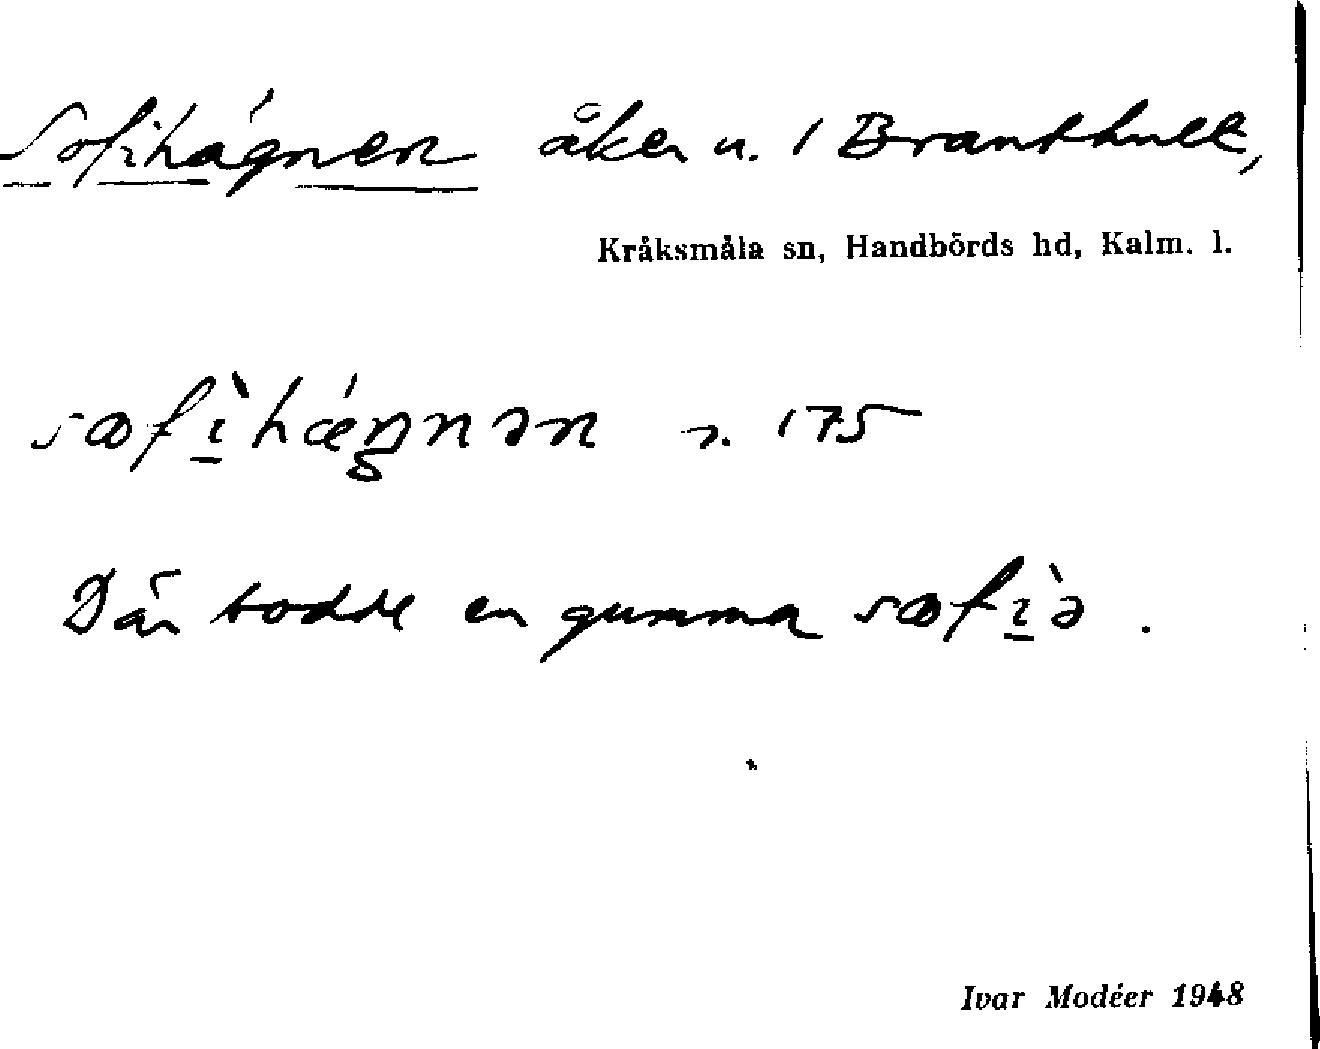 Sofihágnen åker u. 1 Branthult,
Kråksmåla sn, Handbörds hd, Kalm. l.
s. 175
Där bodde en gumma
Ivar Modéer 1948